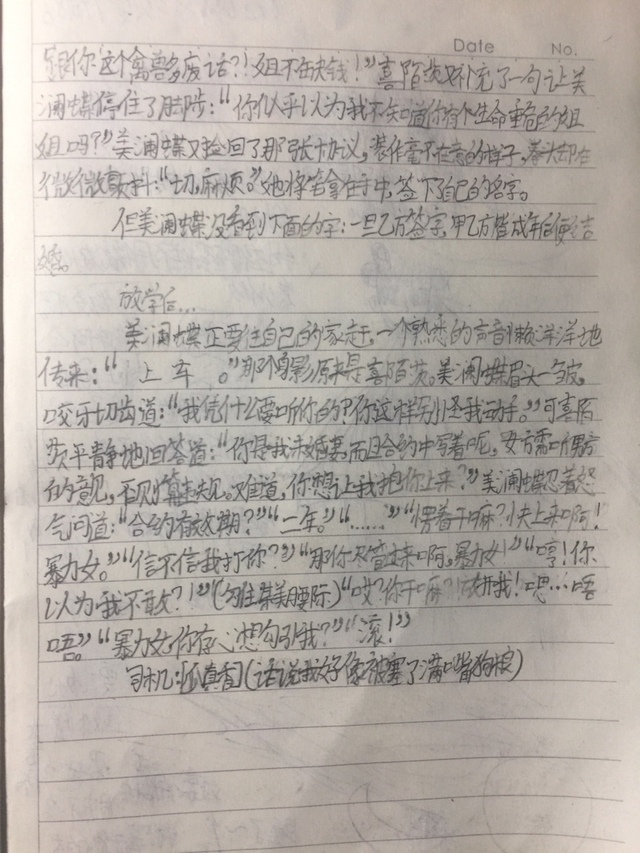 Date No.
跟你这个禽兽多废话?!姐不缺钱!”喜陌茨又补充了一句让美
澜蝶停住了脚步:“你似乎以为我不知道你有个生命垂危的姐
姐吗?”美澜蝶又捡回了那张协议,装作毫不在意的样子,拳头却在
微微颤抖:“切,麻烦。”她将笔拿在手中,签下了自己的名字。
但美澜蝶没看到下面的字:一旦乙方签字,甲乙方皆成年后便结
婚。
放学后...
美澜蝶正要往自己的家走,一个熟悉的声音懒洋洋地
传来:“上车。”那个身影原来是喜陌茨。美澜蝶眉头一皱,
咬牙切齿道:“我凭什么要听你的?你这样别怪我动手。”可喜陌
茨平静地回答道:“你是我未婚妻,而且合约中写着呢,女方需听男方
的意见,否则算违规。难道,你想让我抱你上来?”美澜蝶忍着怒
气问道:“合约有效期?”“二年。”“......”“愣着干嘛?快上来啊!
暴力女。”“信不信我打你?”“那你尽管过来啊,暴力女!”“哼!你
以为我不敢?!”(勾住某美腰际)“哎?你干嘛?放开我!嗯...唔
唔。”“暴力女,你存心想勾引我?”“滚!”
司机:[瓜真香](话说我好像被塞了满嘴狗粮)